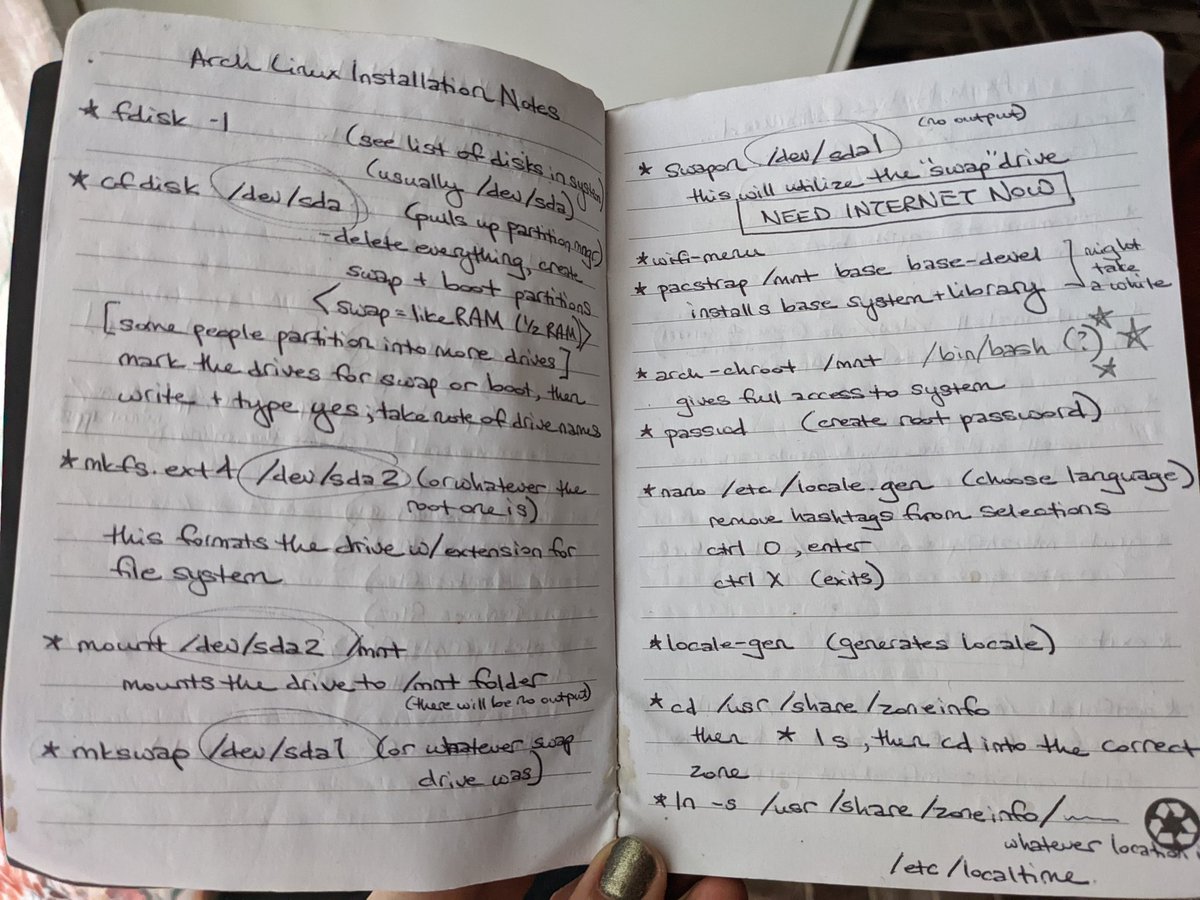 Arch Linux Installation Notes
* fdisk -l
(see list of disks in system)
(usually /dev/sda)
* cfdisk /dev/sda
(pulls up partition mngr)
- delete everything, create
swap + boot partitions
<swap = like RAM (1/2 RAM)>
[some people partition into more drives]
mark the drives for swap or boot, then
write + type yes; take note of drive names
* mkfs.ext4 /dev/sda2 (or whatever the
root one is)
this formats the drive w/ extension for
file system
* mount /dev/sda2 /mnt
mounts the drive to /mnt folder
(there will be no output)
* mkswap /dev/sda1 (or whatever swap
drive was)
(no output)
* swapon /dev/sda1
this will utilize the "swap" drive
NEED INTERNET NOW
* wifi-menu
* pacstrap /mnt base base-devel
installs base system + library
might
take
a while
* arch-chroot /mnt /bin/bash (?)
gives full access to system
* passwd (create root password)
* nano /etc/locale.gen (choose language)
remove hashtags from selections
ctrl O, enter
ctrl X (exits)
* locale-gen (generates locale)
* cd /usr/share/zoneinfo
then * ls, then cd into the correct
zone
* ln -s /usr/share/zoneinfo/
whatever location
/etc/localtime.